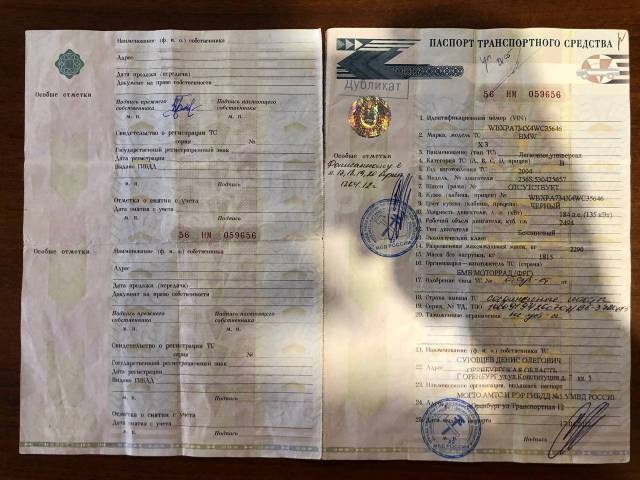 Наименование (ф. и. о.) собственника
Адрес
Дата продажи (передачи)
Документ на право собственности
Особые отметки
Подпись прежнего собственника
Подпись настоящего собственника
М. п.
М. п.
Свидетельство о регистрации ТС
серия №
Государственный регистрационный знак
Дата регистрации
Выдано ГИБДД
М. п.
Подпись
Отметка о снятии с учета
Дата снятия с учета
М. п.
Подпись
56 НМ 059656
Особые отметки
Наименование (ф. и. о.) собственника
Адрес
Дата продажи (передачи)
Документ на право собственности
Подпись прежнего собственника
Подпись настоящего собственника
М. п.
М. п.
Свидетельство о регистрации ТС
серия №
Государственный регистрационный знак
Дата регистрации
Выдано ГИБДД
М. п.
Подпись
Отметка о снятии с учета
Дата снятия с учета
М. п.
Подпись
ПАСПОРТ ТРАНСПОРТНОГО СРЕДСТВА
Дубликат
56 НМ 059656
1. Идентификационный номер (VIN)
WBXPA734X4WC35646
2. Марка, модель ТС BMW
X3
3. Наименование (тип ТС) Легковые универсал
4. Категория ТС (А, В, С, D, прицеп) B
5. Год изготовления ТС 2004
6. Модель, № двигателя
7. Шасси (рама) № ОТСУТСТВУЕТ
8. Кузов (кабина, прицеп) № WBXPA734X4WC35646
9. Цвет кузова (кабины, прицепа) ЧЕРНЫЙ
10. Мощность двигателя, л. с. (кВт) 184 л.с. (135 кВт)
11. Рабочий объем двигателя, куб. см 2494
12. Тип двигателя Бензиновый
13. Экологический класс
14. Разрешенная максимальная масса, кг 2290
15. Масса без нагрузки, кг 1815
16. Организация—изготовитель ТС (страна)
БМВ МОТОРРАД (ФРГ)
17. Одобрение типа ТС №
18. Страна вывоза ТС
19. Серия, № ТД, ТПО
20. Таможенные ограничения
21. Наименование (ф. и. о.) собственника ТС
СУРОВЦЕВ ДЕНИС ОЛЕГОВИЧ
22. Адрес ОРЕНБУРГСКАЯ ОБЛАСТЬ
Г ОРЕНБУРГ ул.ул.Конституции д.7 кв.5
23. Наименование организации, выдавшей паспорт
МОГТО АМТС И РЭР ГИБДД №1 УМВД РОССИИ
24. Адрес г.Оренбург ул.Транспортная 12
25. Дата выдачи паспорта
Подпись
МВД РОССИИ
МВД РОССИИ